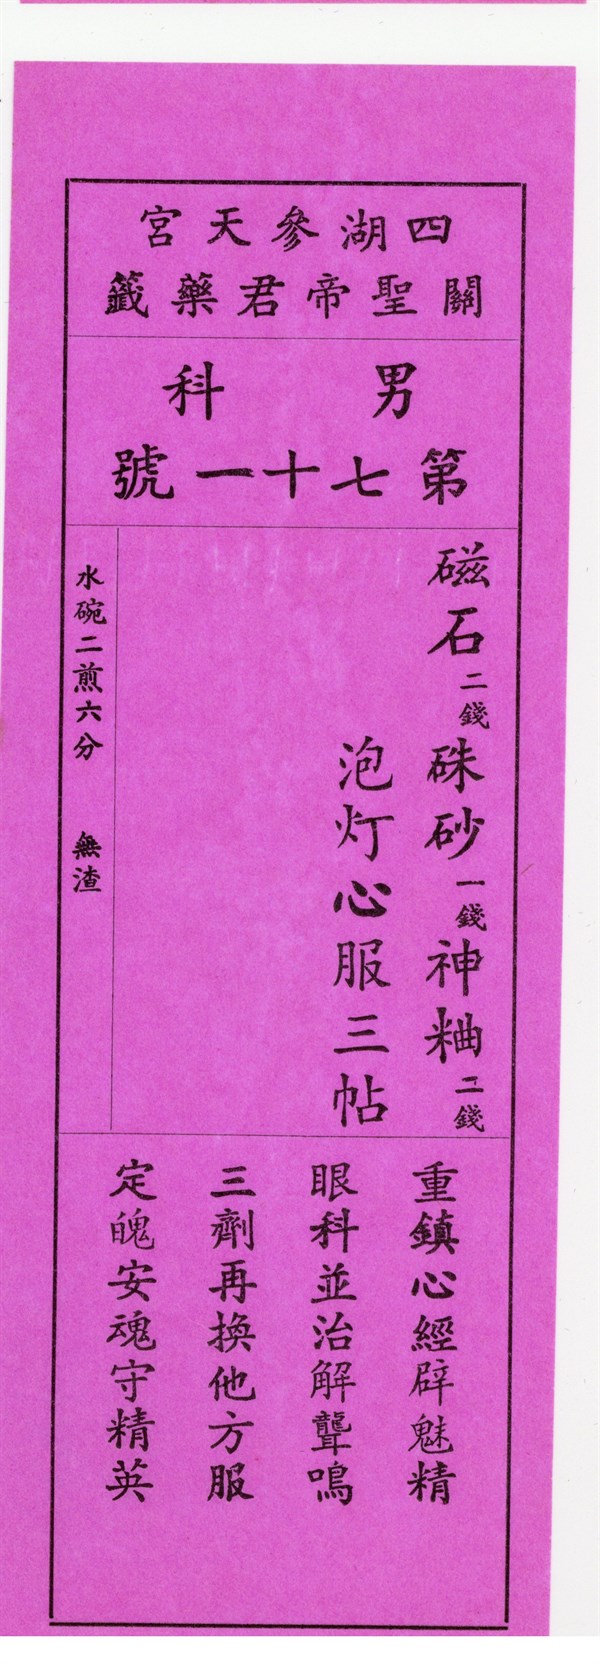 四湖參天宮
關聖帝君藥籤
男科
第七十一號
磁石二錢硃砂一錢神粬二錢
泡灯心服三帖
水碗二煎六分 無渣
重鎮心經辟魅精
眼科並治解聾鳴
三劑再換他方服
定魄安魂守精英